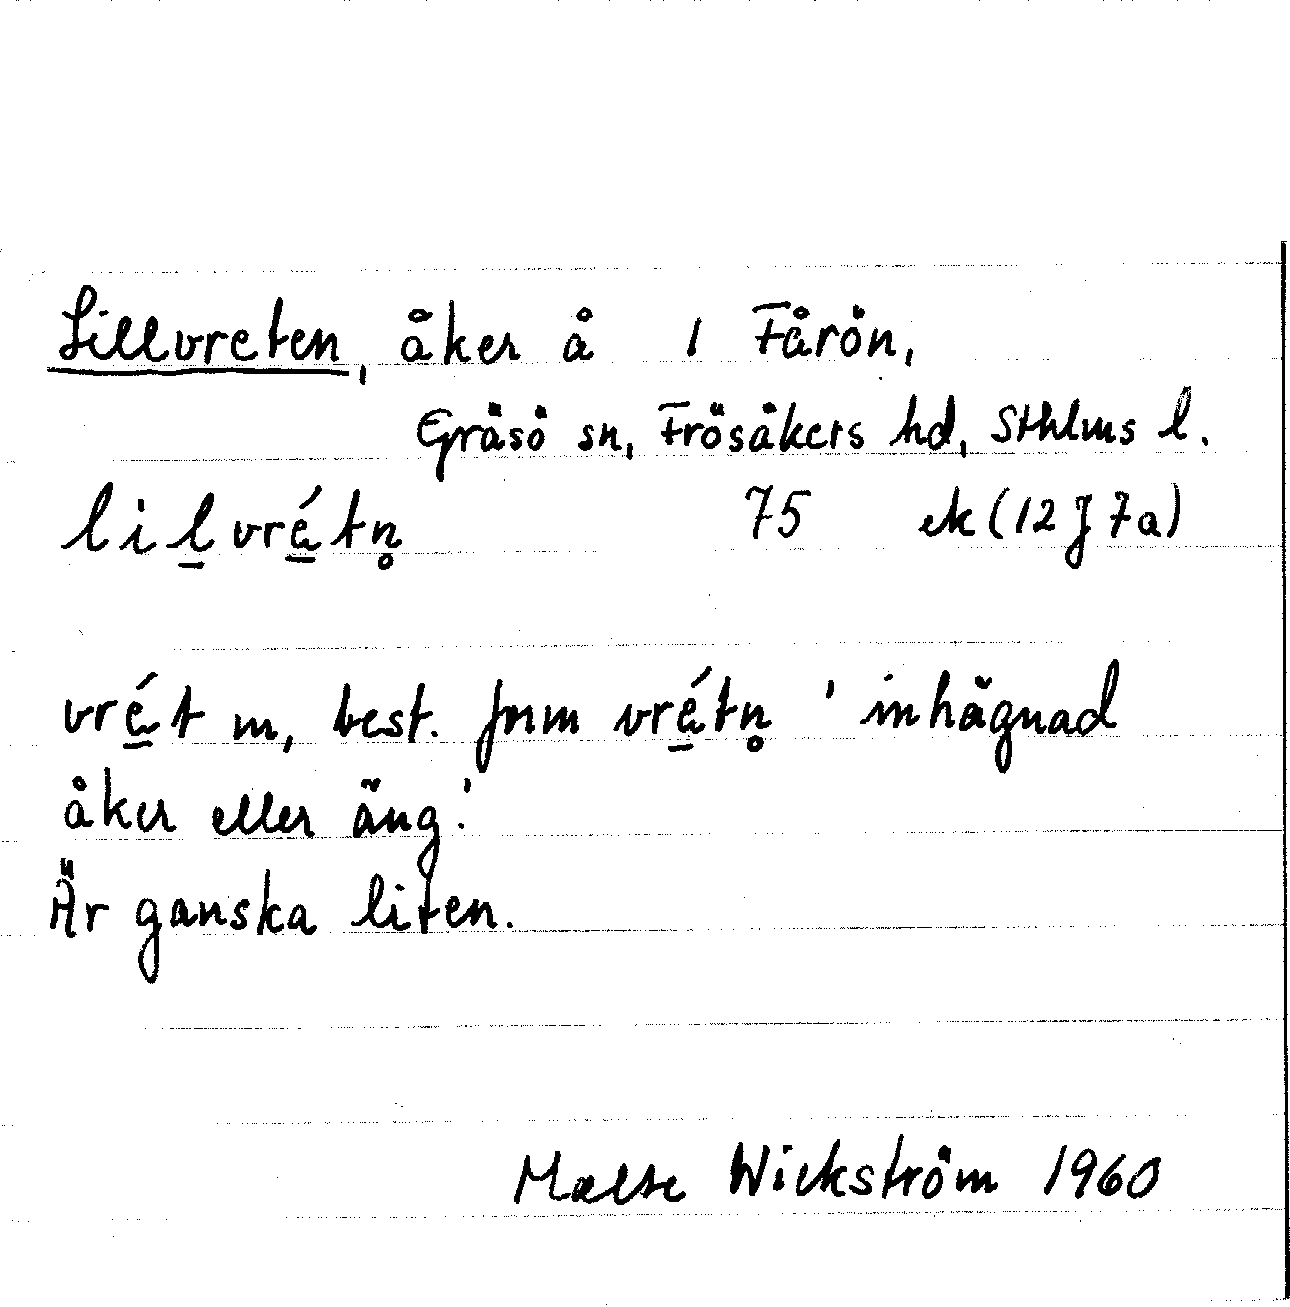 Lillvreten, åker å 1 Fårön,
Gräsö sn, Frösåkers hd, Sthlms l.
lil̲vré̲tn̥ 75 ek (12 J 7a)
vré̲t m, best. form vré̲tn̥ 'inhägnad
åker eller äng.'
Är ganska liten.
Malte Wickström 1960